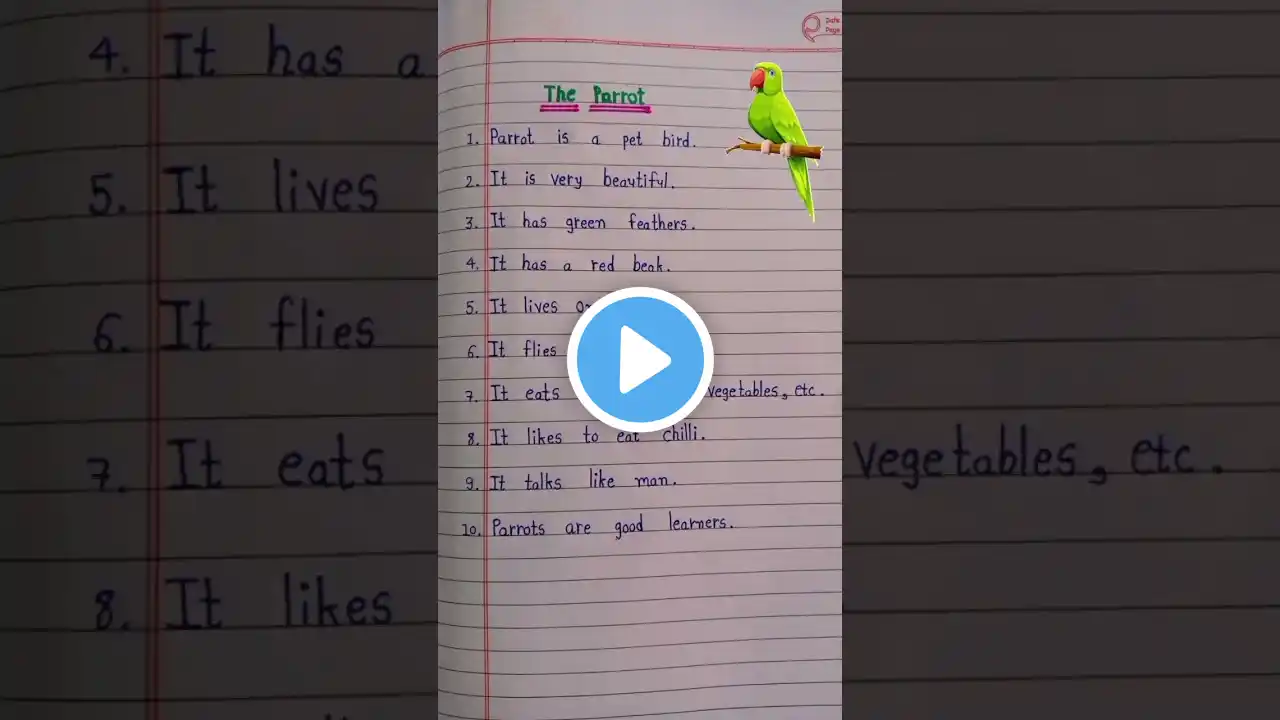 Date
Page
The Parrot
1. Parrot is a pet bird.
2. It is very beautiful.
3. It has green feathers.
4. It has a red beak.
5. It lives
6. It flies
7. It eats vegetables, etc.
8. It likes to eat chilli.
9. It talks like man.
10. Parrots are good learners.
4. It has a
5. It lives
6. It flies
7. It eats
8. It likes
vegetables, etc.